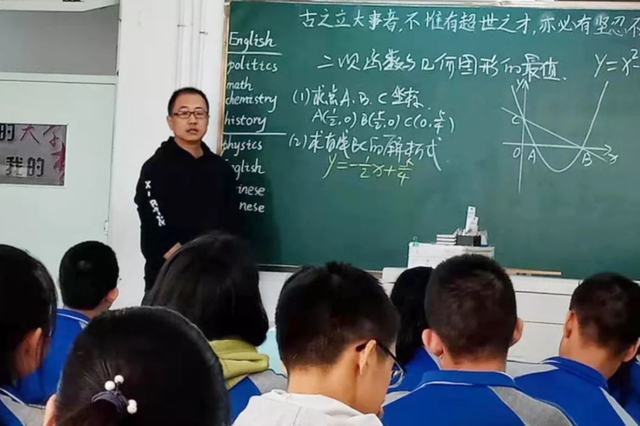 古之立大事者,不惟有超世之才,亦必有坚忍不
English
politics
math
chemistry
history
physics
nglish
inese
nese
二次函数与几何图形的最值.
y=x²
(1)求点A、B、C坐标.
A(1/2,0) B(5/2,0) C(0,5/4)
(2)求直线BC的解析式
y=-1/2x+5/4
y
C
O A B x
的大学
我的